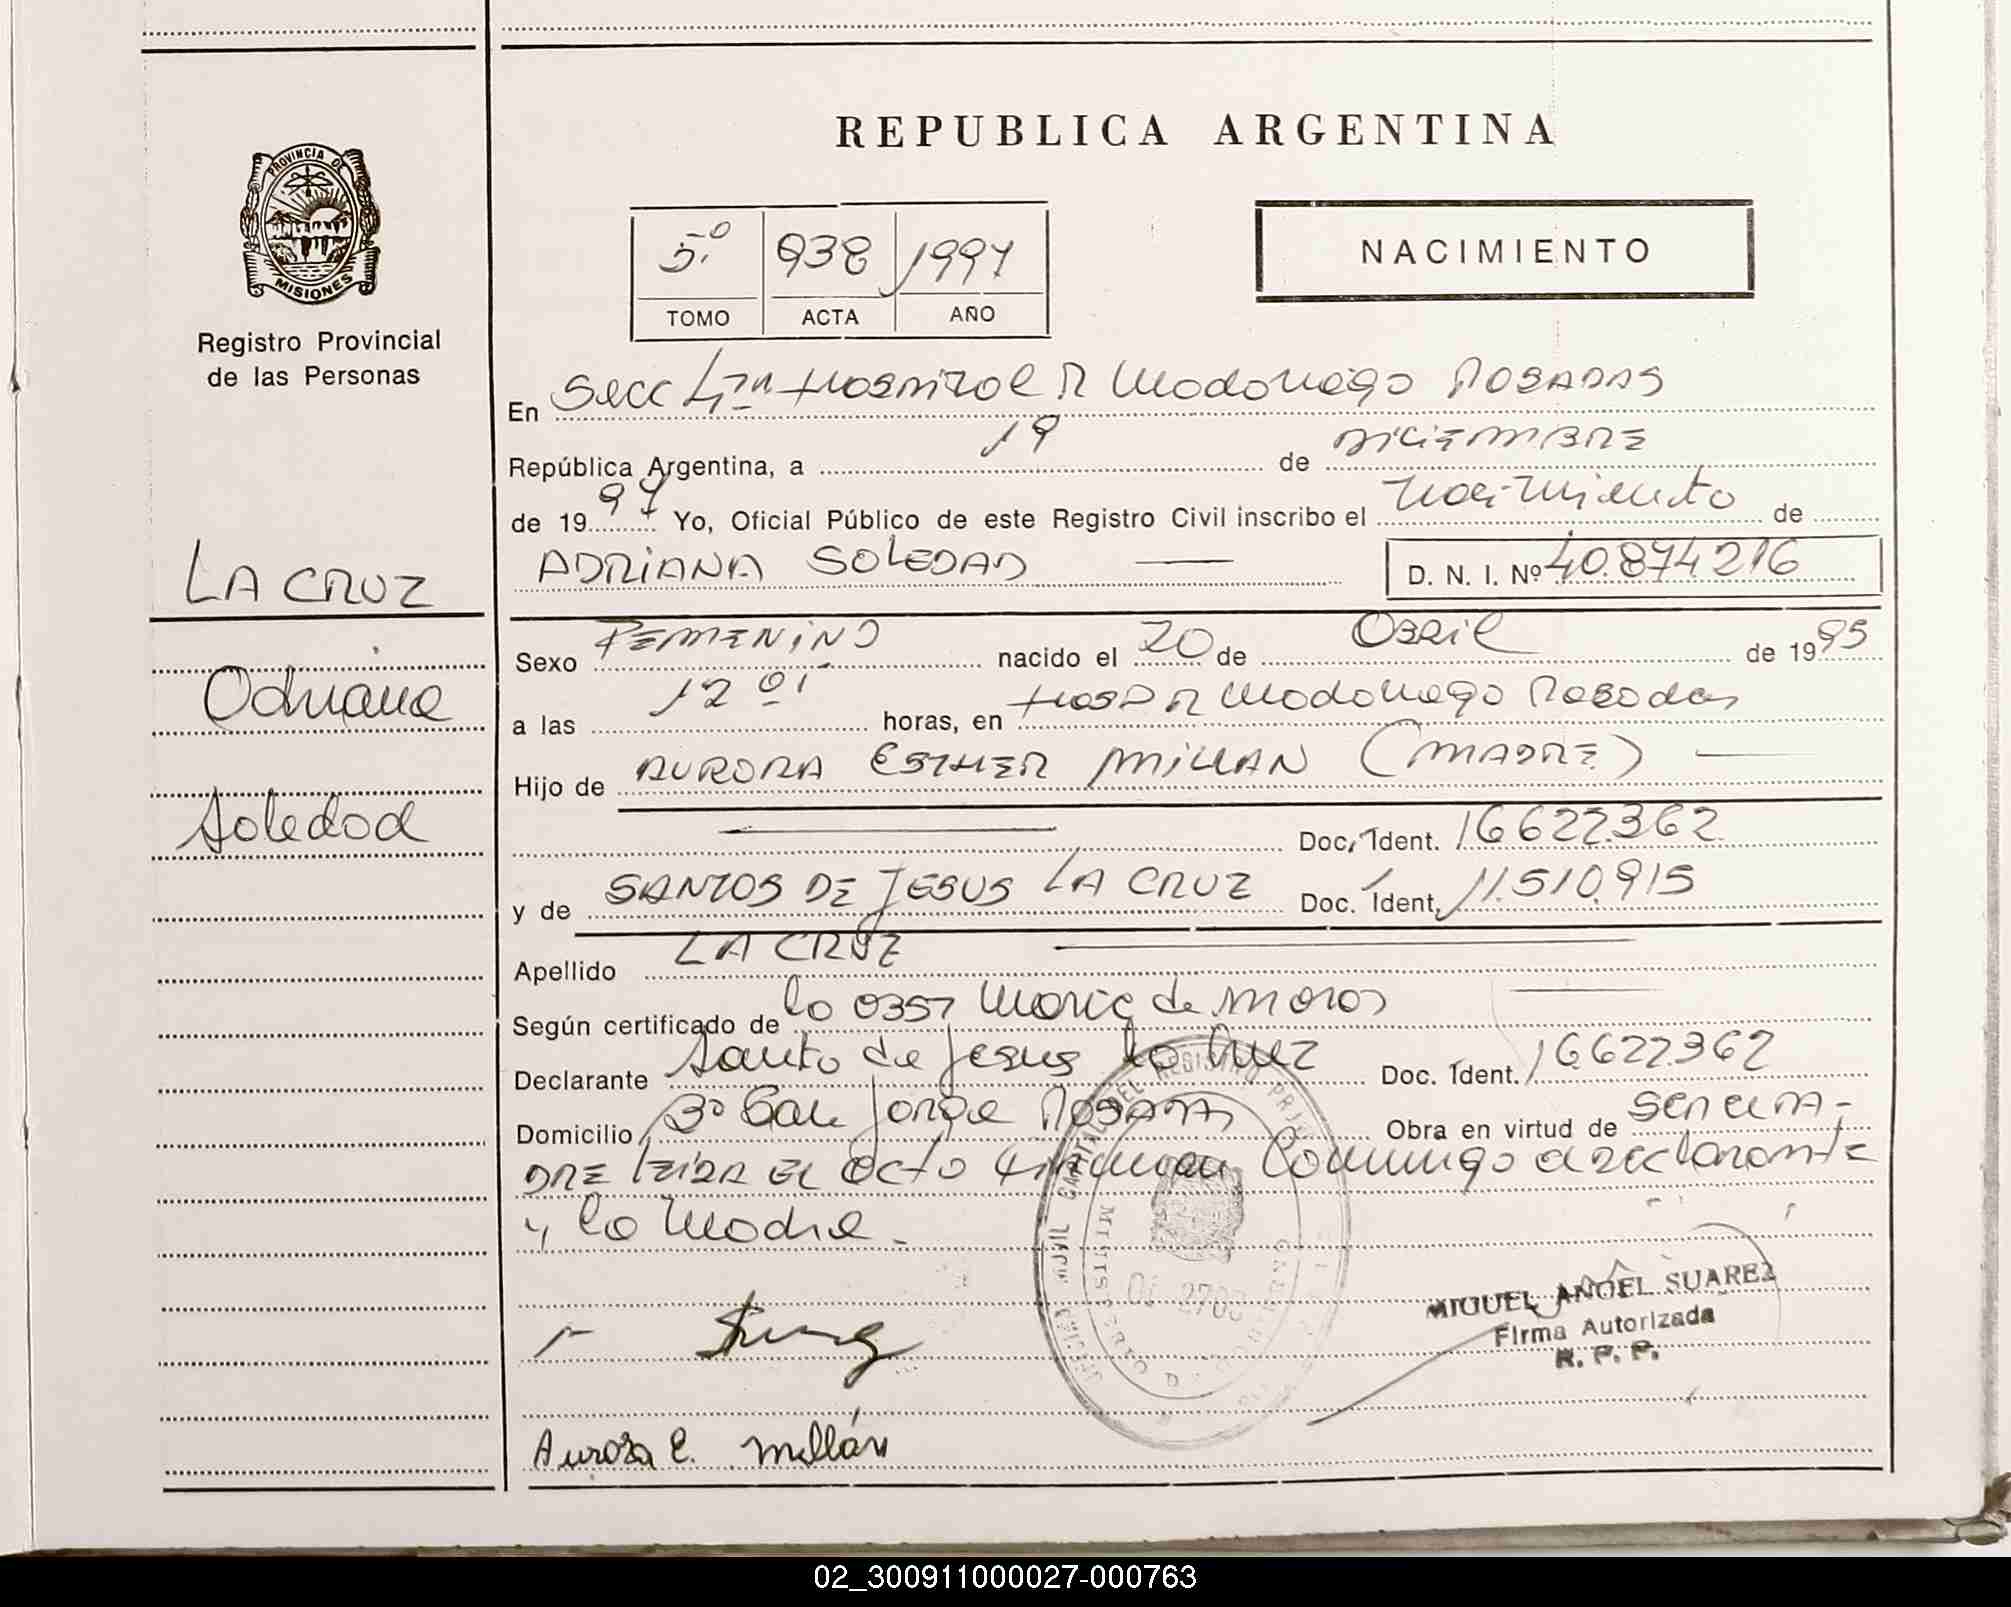 REPUBLICA ARGENTINA
PROVINCIA DE
MISIONES
Registro Provincial
de las Personas
5º 938 1997
TOMO ACTA AÑO
NACIMIENTO
En Secc 4ta Hospital R Madariaga POSADAS
República Argentina, a 19 de DICIEMBRE
de 1997 Yo, Oficial Público de este Registro Civil inscribo el nacimiento de
ADRIANA SOLEDAD D. N. I. Nº 40.874216
LA CRUZ
Adriana
Soledad
Sexo FEMENINO nacido el 20 de Abril de 1995
a las 12 horas, en Hosp R Madariaga Posadas
Hijo de AURORA ESTHER MILLAN (MADRE)
Doc. Ident. 16622362
y de SANTOS DE JESUS LA CRUZ Doc. Ident. 11.510.915
Apellido LA CRUZ
Según certificado de la Maria de
Declarante Santo de Jesus La Cruz Doc. Ident. 16622362
Domicilio Bº San Jorge POSADAS Obra en virtud de SER el PA-
DRE leida EL Acta firman Conmigo el declarante
y la Madre.
MIGUEL ANGEL SUAREZ
Firma Autorizada
R. P. P.
Aurora E. Millán
02_300911000027-000763